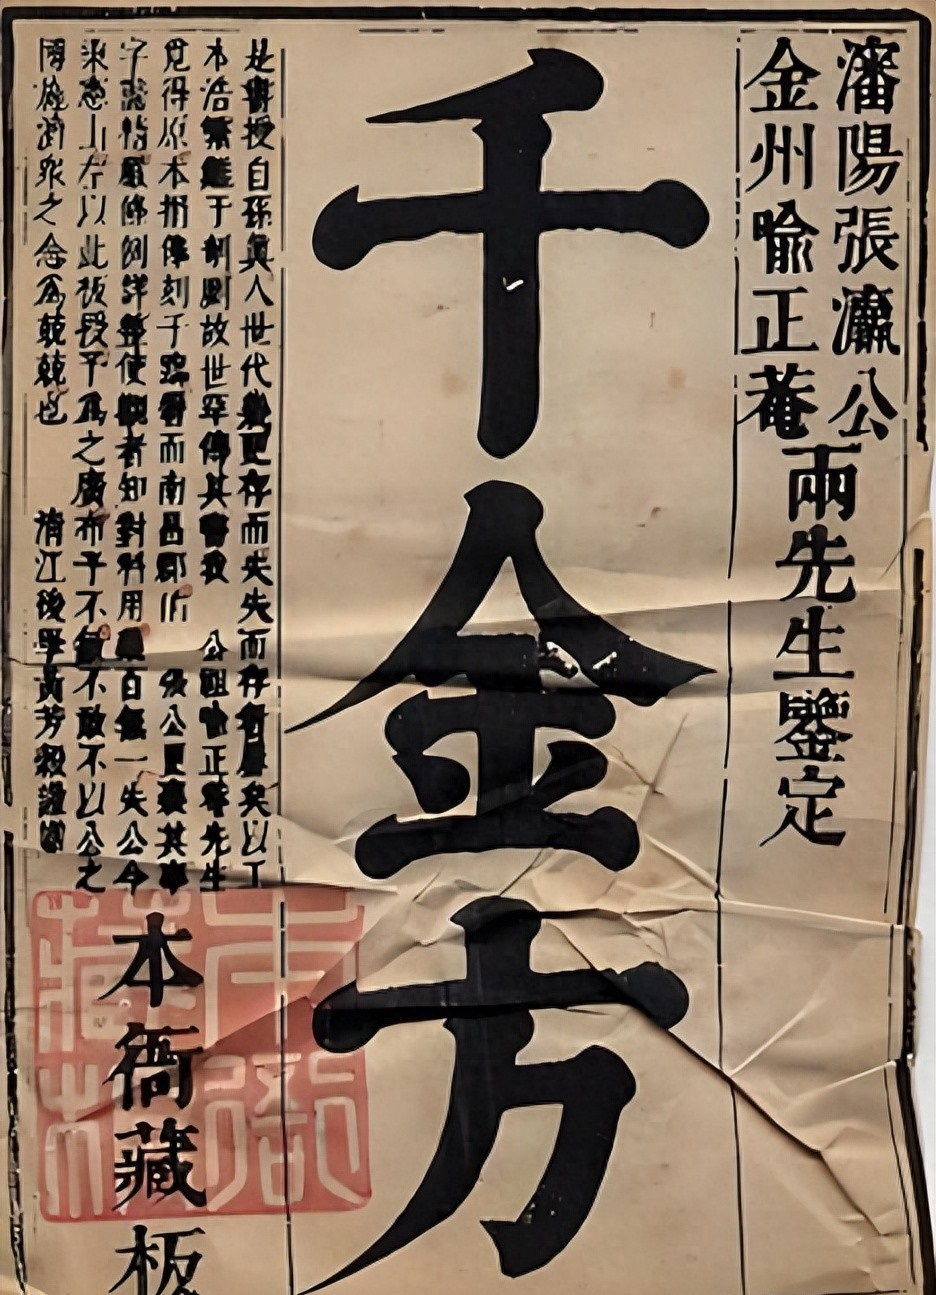 瀋陽張瀛公
金州喻正菴
兩先生鑒定
千金方
是書授自孫真人世代數更存而失失而存者屢矣以丁
本浩繁難于剞劂故世罕傳其書我 公祖喻正菴先生
覓得原本捐俸刻于署而南昌郡伯 張公更襄其事
字畫精嚴條例詳整使觀者知對科用藥百無一失公今
來憲山左以此板授予為之廣布予不敏不敢不以公之
施濟眾之念為兢兢也 清江後學黃芳毅謹
本衙藏板
本衙藏板